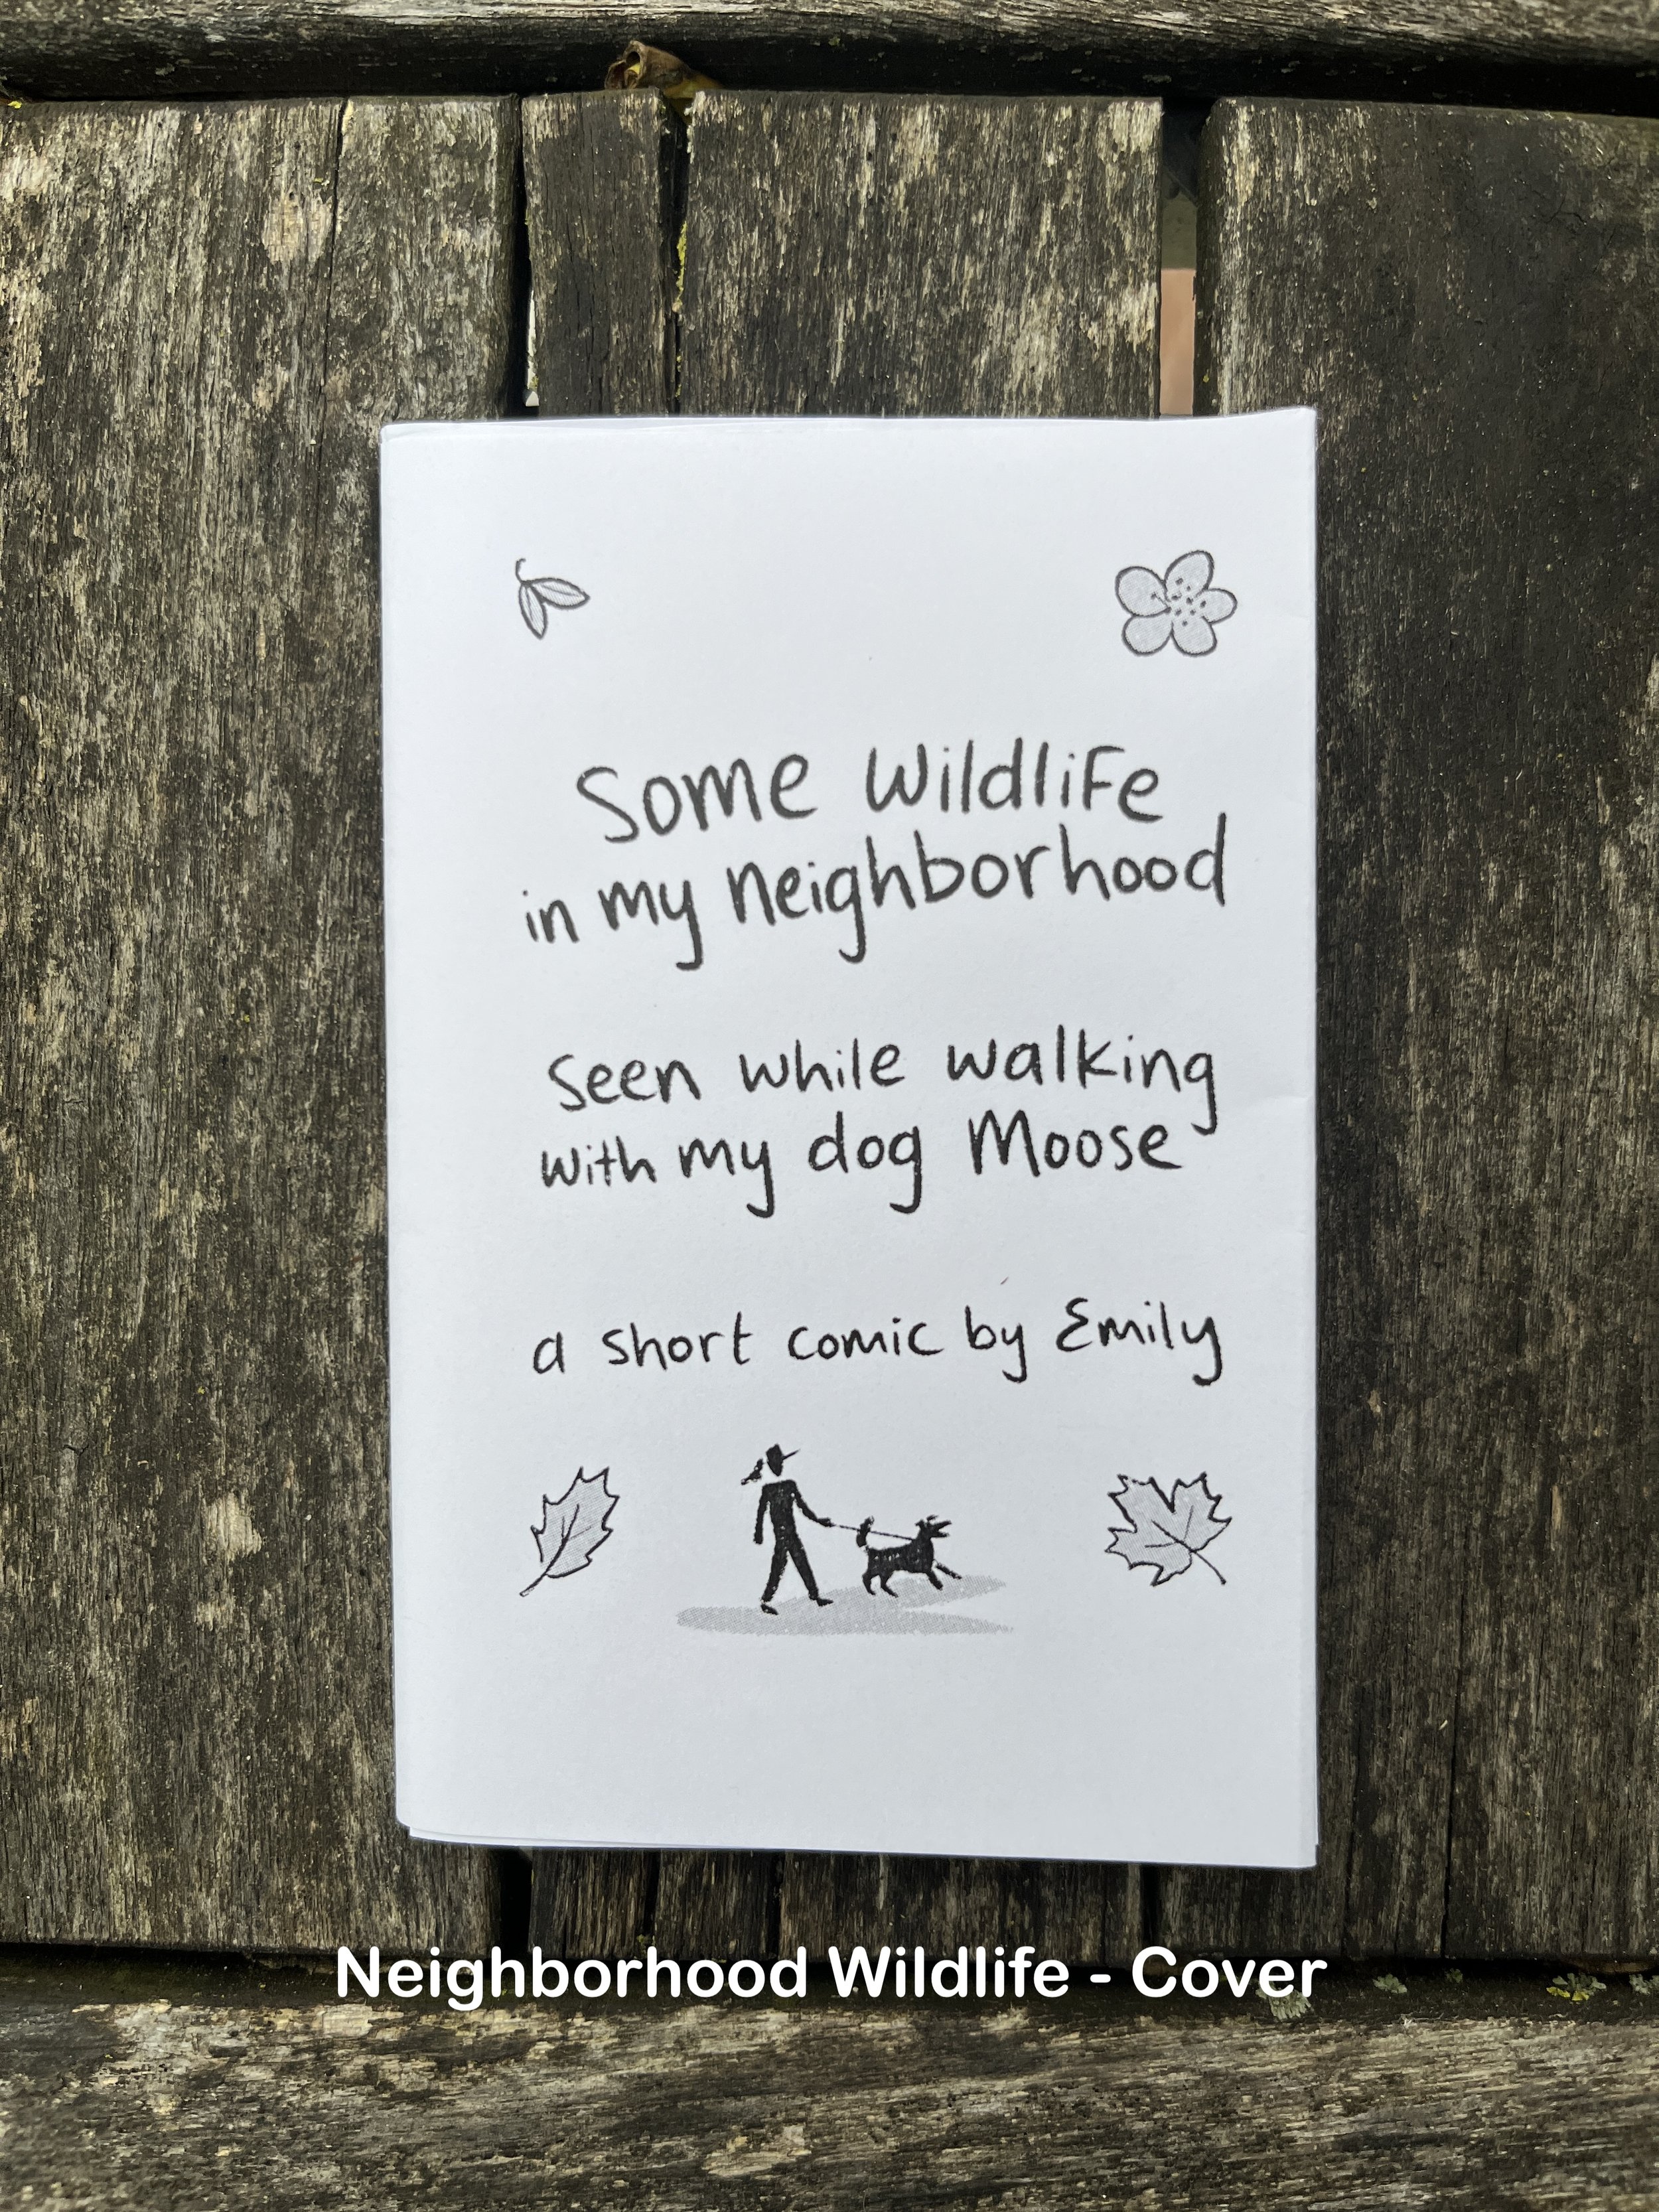 Some Wildlife
in my neighborhood
Seen while walking
with my dog Moose
a short comic by Emily
Neighborhood Wildlife - Cover